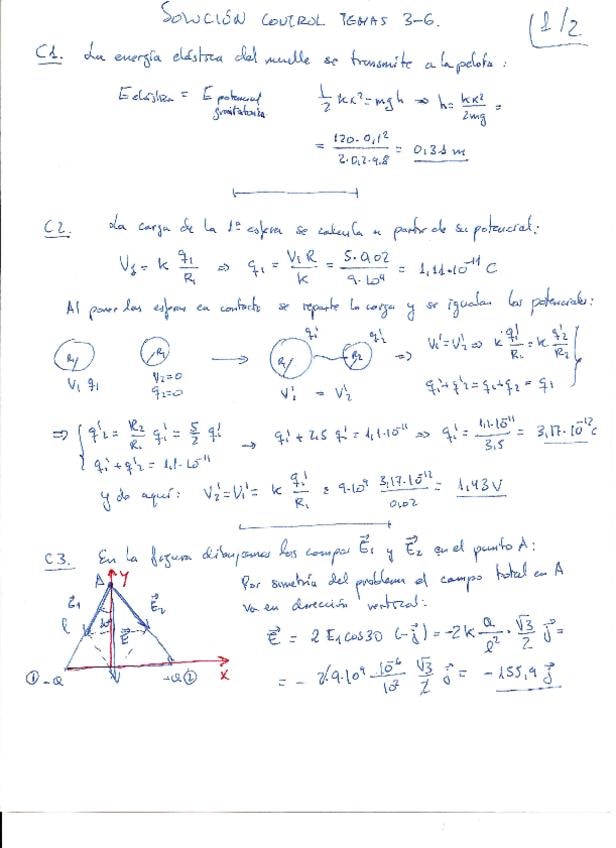 SOLUCIÓN CONTROL TEMAS 3-6.
(1/2
C1. La energía elástica del muelle se transmite a la pelota:
E elástica = E potencial gravitatoria 1/2 kx² = mgh ⇒ h = kx²/2mg =
= 120·0,1²/2·0,2·9,8 = 0,31 m
C2. La carga de la 1ª esfera se calcula a partir de su potencial:
V₁ = k q₁/R₁ ⇒ q₁ = V₁R/k = 5·0,02/9·10⁹ = 1,11·10⁻¹¹ C
Al poner las esferas en contacto se reparte la carga y se igualan los potenciales:
R₁ R₁ → R₁ R₂ q₁' q₂' ⇒ V₁' = V₂' ⇒ k q₁'/R₁ = k q₂'/R₂
V₁ q₁ V₂=0 q₂=0 V₁' = V₂' q₁'+q₂' = q₁+q₂ = q₁
⇒ { q₂' = R₂/R₁ q₁' = 5/2 q₁' → q₁' + 2,5 q₁' = 1,1·10⁻¹¹ ⇒ q₁' = 1,1·10⁻¹¹/3,5 = 3,17·10⁻¹² C
q₁' + q₂' = 1,1·10⁻¹¹
y de aquí: V₂' = V₁' = k q₁'/R₁ = 9·10⁹ 3,17·10⁻¹²/0,02 = 1,43 V
C3. En la figura dibujamos los campos E⃗₁ y E⃗₂ en el punto A:
A Y
E⃗₁ E⃗₂
l E⃗
① -Q -Q ② X
Por simetría del problema el campo total en A
va en dirección vertical:
E⃗ = 2 E₁ cos 30 (-j⃗) = -2k Q/l² · √3/2 j⃗ =
= - 2·9·10⁹ 10⁻⁶/10² √3/2 j⃗ = -155,9 j⃗